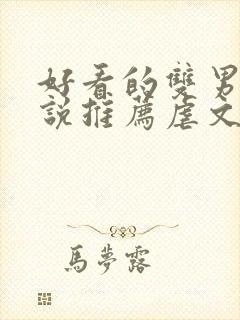 好看的雙男
說推薦虐文
馬夢露